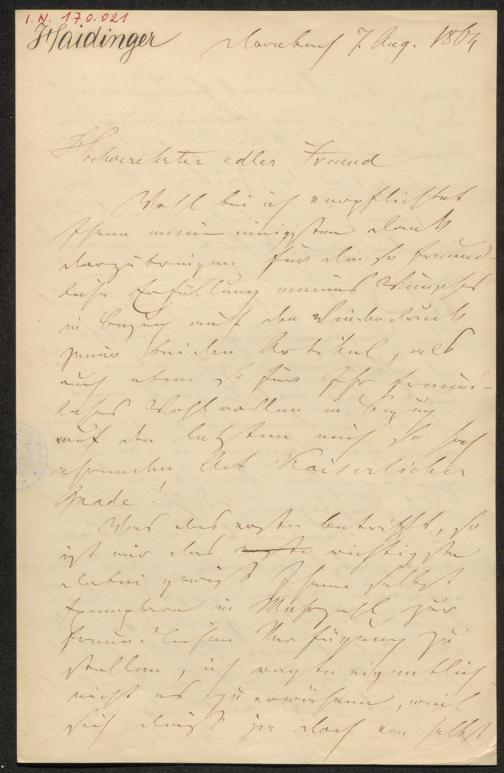 I. N. 170.021
Haidinger
Dornbach 7. Aug. 1864
Hochverehrter edler Freund
Wohl bin ich verpflichtet
Ihnen meinen innigsten Dank
darzubringen für die so freund-
liche Erfüllung meines Wunsches
in Bezug auf den Wiederabdruck
jener beiden Artikel, als
auch eben so für Ihr freund-
liches Wohlwollen in Bezug
auf den letzten mich so hoch
ehrenden Akt Kaiserlicher
Gnade!
Was das erste betrifft, so
ist mir das wichtigste
dabei gewiß Ihnen selbst
Exemplare in Mehrzahl zur
freundlichen Verfügung zu
stellen, ich wagte eigentlich
nicht es zu erwähnen, weil
sich dieß ja doch von selbst